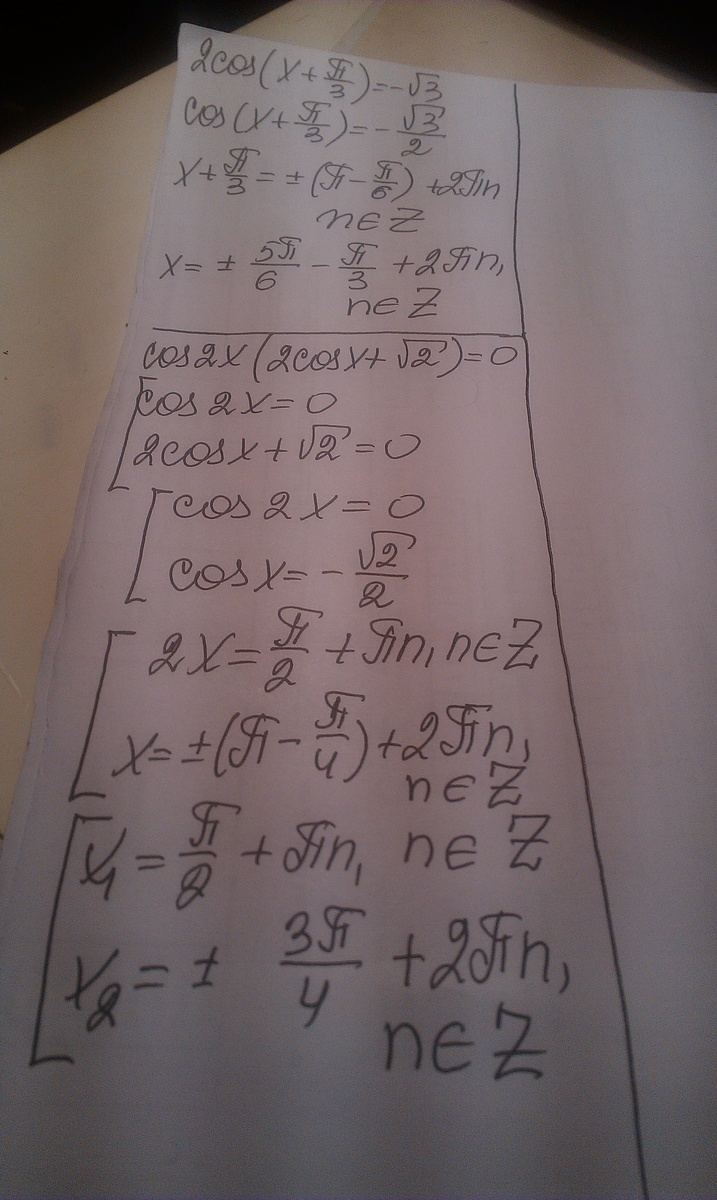 2cos(x+π/3)=-√3
cos(x+π/3)=-√3/2
x+π/3=±(π-π/6)+2πn
n∈Z
x=±5π/6-π/3+2πn,
n∈Z
cos2x(2cosx+√2)=0
cos2x=0
2cosx+√2=0
cos2x=0
cosx=-√2/2
2x=π/2+πn, n∈Z
x=±(π-π/4)+2πn,
n∈Z
x₁=π/2+πn, n∈Z
x₂=± 3π/4+2πn,
n∈Z